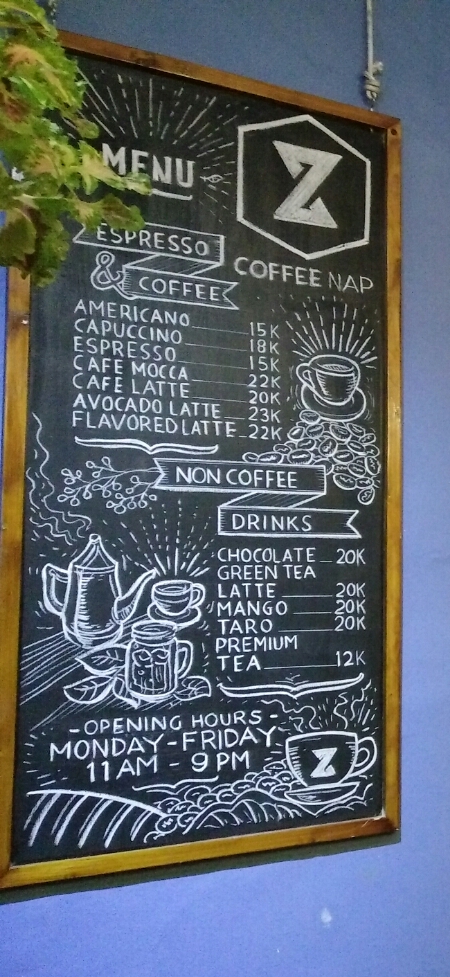 MENU
Z
COFFEE NAP
ESPRESSO
& COFFEE
AMERICANO 15K
CAPUCCINO 18K
ESPRESSO 15K
CAFE MOCCA 22K
CAFE LATTE 20K
AVOCADO LATTE 23K
FLAVORED LATTE 22K
NON COFFEE
DRINKS
CHOCOLATE 20K
GREEN TEA
LATTE 20K
MANGO 20K
TARO 20K
PREMIUM
TEA 12K
- OPENING HOURS -
MONDAY - FRIDAY
11 AM - 9 PM
Z